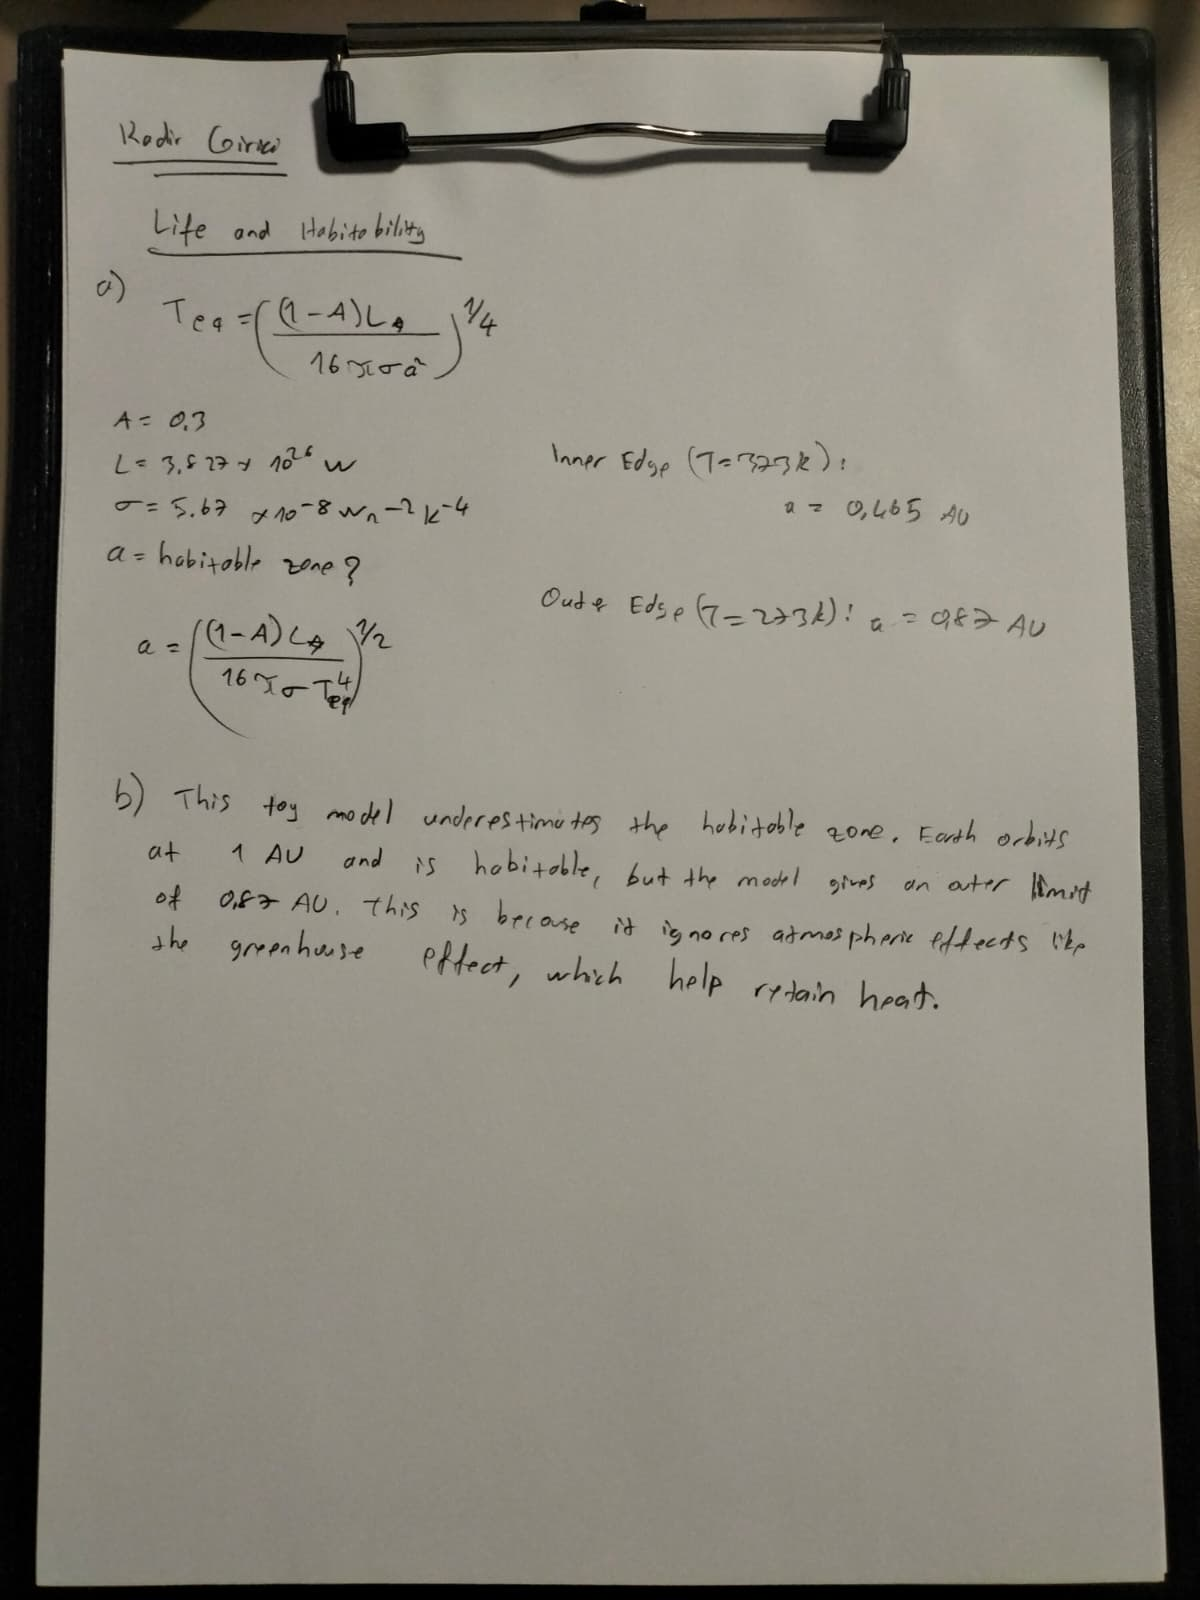 Kadir Girici
Life and Habitability
a)
T_eq = ((1-A)L_* / 16πσa²)^1/4
A = 0.3
L = 3.827 x 10^26 W
σ = 5.67 x 10^-8 Wm^-2 K^-4
a = habitable zone?
a = ((1-A)L_* / 16πσT_eq^4)^1/2
Inner Edge (T=373K):
a = 0,465 AU
Outer Edge (T=273K): a = 0,87 AU
b) This toy model underestimates the habitable zone. Earth orbits
at 1 AU and is habitable, but the model gives an outer limit
of 0,87 AU. This is because it ignores atmospheric effects like
the greenhouse effect, which help retain heat.